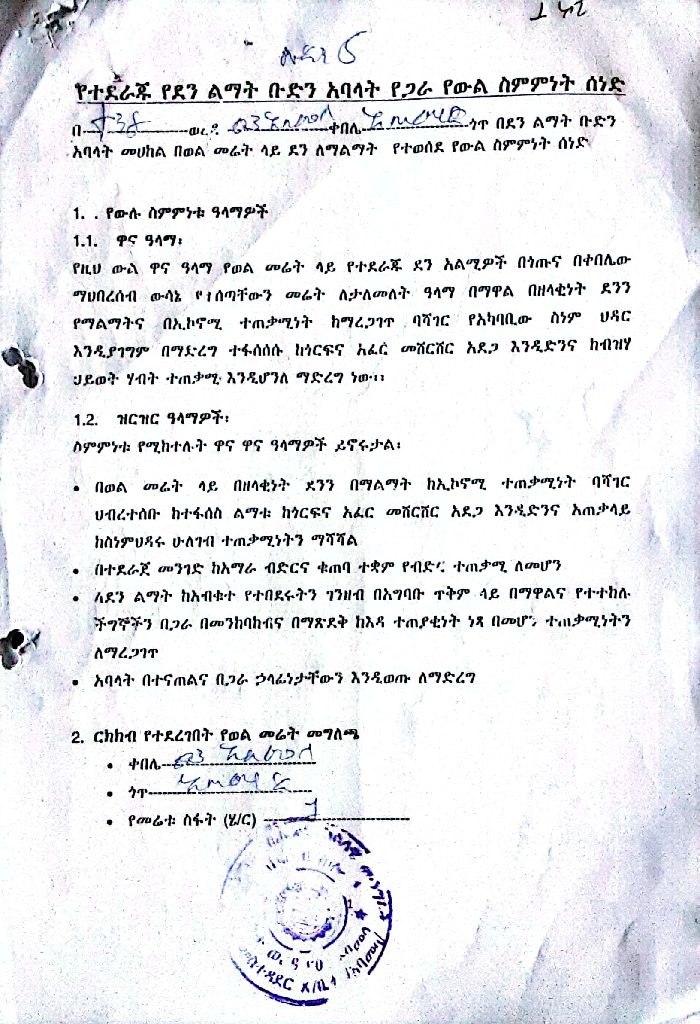 የተደራጁ የደን ልማት ቡድን አባላት የጋራ የውል ስምምነት ሰነድ
በ ወረዳ ቀበሌ ጎጥ በደን ልማት ቡድን
አባላት መሀከል በወል መሬት ላይ ደን ለማልማት የተወሰደ የውል ስምምነት ሰነድ
1. . የውሉ ስምምነቱ ዓላማዎች
1.1. ዋና ዓላማ፡
የዚህ ውል ዋና ዓላማ የወል መሬት ላይ የተደራጁ ደን አልሚዎች በጎጡና በቀበሌው
ማህበረሰብ ውሳኔ የተሰጣቸውን መሬት ለታለመለት ዓላማ በማዋል በዘላቂነት ደንን
የማልማትና በኢኮኖሚ ተጠቃሚነት ከማረጋገጥ ባሻገር የአካባቢው ስነም ህዳር
እንዲያገግም በማድረግ ተፋሰሰሱ ከጎርፍና አፈር መሸርሸር አደጋ እንዲድንና ከብዝሃ
ህይወት ሃብት ተጠቃሚ እንዲሆንለ ማድረግ ነው፡፡
1.2. ዝርዝር ዓላማዎች፡
ስምምነቱ የሚከተሉት ዋና ዋና ዓላማዎች ይኖሩታል፡
• በወል መሬት ላይ በዘላቂነት ደንን በማልማት ከኢኮኖሚ ተጠቃሚነት ባሻገር
ህብረተሰቡ ከተፋሰስ ልማቱ ከጎርፍና አፈር መሸርሸር አደጋ እንዲድንና አጠቃላይ
ከስነምህዳሩ ሁለገብ ተጠቃሚነትን ማሻሻል
• በተደራጀ መንገድ ከአማራ ብድርና ቁጠባ ተቋም የብድር ተጠቃሚ ለመሆን
• ለደን ልማት ከአብቁተ የተበደሩትን ገንዘብ በአግባቡ ጥቅም ላይ በማዋልና የተተከሉ
ችግኞችን በጋራ በመንከባከብና በማጽደቅ ከእዳ ተጠያቂነት ነጻ በመሆን ተጠቃሚነትን
ለማረጋገጥ
• አባላት በተናጠልና በጋራ ኃላፊነታቸውን እንዲወጡ ለማድረግ
2. ርክክብ የተደረገበት የወል መሬት መግለጫ
• ቀበሌ
• ጎጥ
• የመሬቱ ስፋት (ሄ/ር)
1